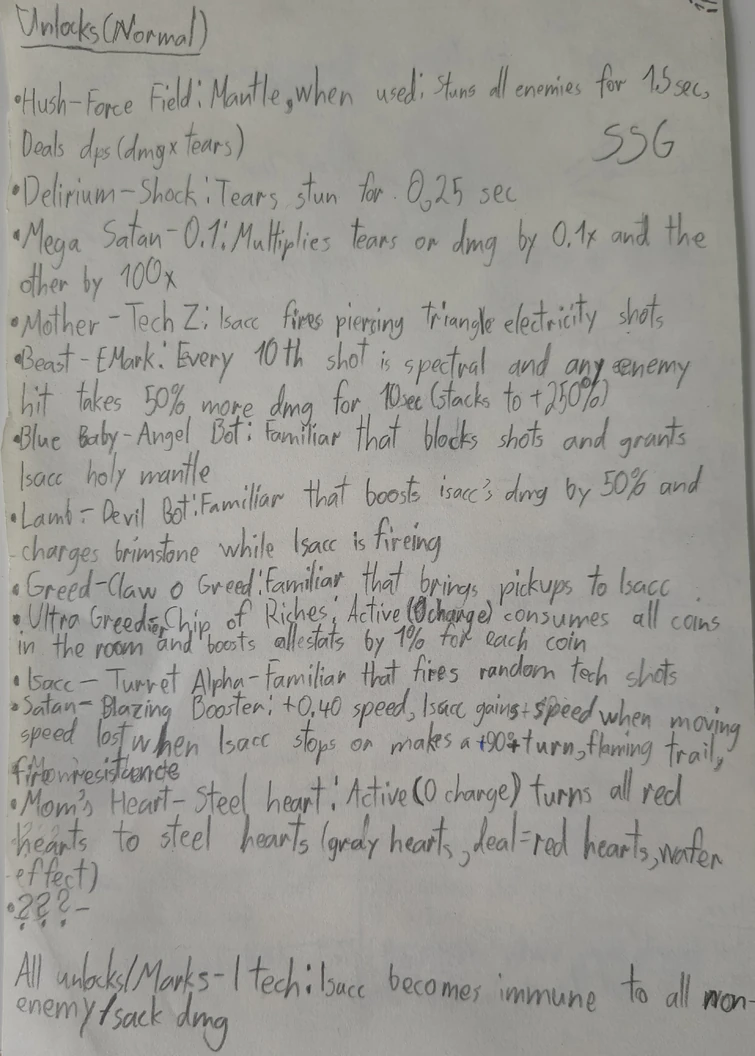 Unlocks(Normal)
•Hush-Force Field: Mantle, when used: stuns all enemies for 1.5 sec,
Deals dps (dmg x tears)
SSG
•Delirium-Shock: Tears stun for 0,25 sec
•Mega Satan-0.1: Multiplies tears or dmg by 0.1x and the
other by 100x
•Mother-Tech Z: Isacc fires piercing triangle electricity shots
•Beast-EMark: Every 10th shot is spectral and any enemy
hit takes 50% more dmg for 10sec (stacks to +250%)
•Blue Baby-Angel Bot: Familiar that blocks shots and grants
Isacc holy mantle
•Lamb-Devil Bot: Familiar that boosts isacc's dmg by 50% and
charges brimstone while Isacc is fireing
•Greed-Claw o Greed: Familiar that brings pickups to Isacc
•Ultra Greed-Chip of Riches: Active (0 charge) consumes all coins
in the room and boosts all stats by 1% for each coin
•Isacc-Turret Alpha-Familiar that fires random tech shots
•Satan-Blazing Booster: +0,40 speed, Isacc gains + speed when moving
speed lost when Isacc stops or makes a +90° turn, flaming trail,
fire resistance
•Mom's Heart-Steel heart: Active (0 charge) turns all red
hearts to steel hearts (gray hearts, deal=red hearts, wafer
effect)
•???-
All unlocks/Marks-I tech: Isacc becomes immune to all non-
enemy/sack dmg